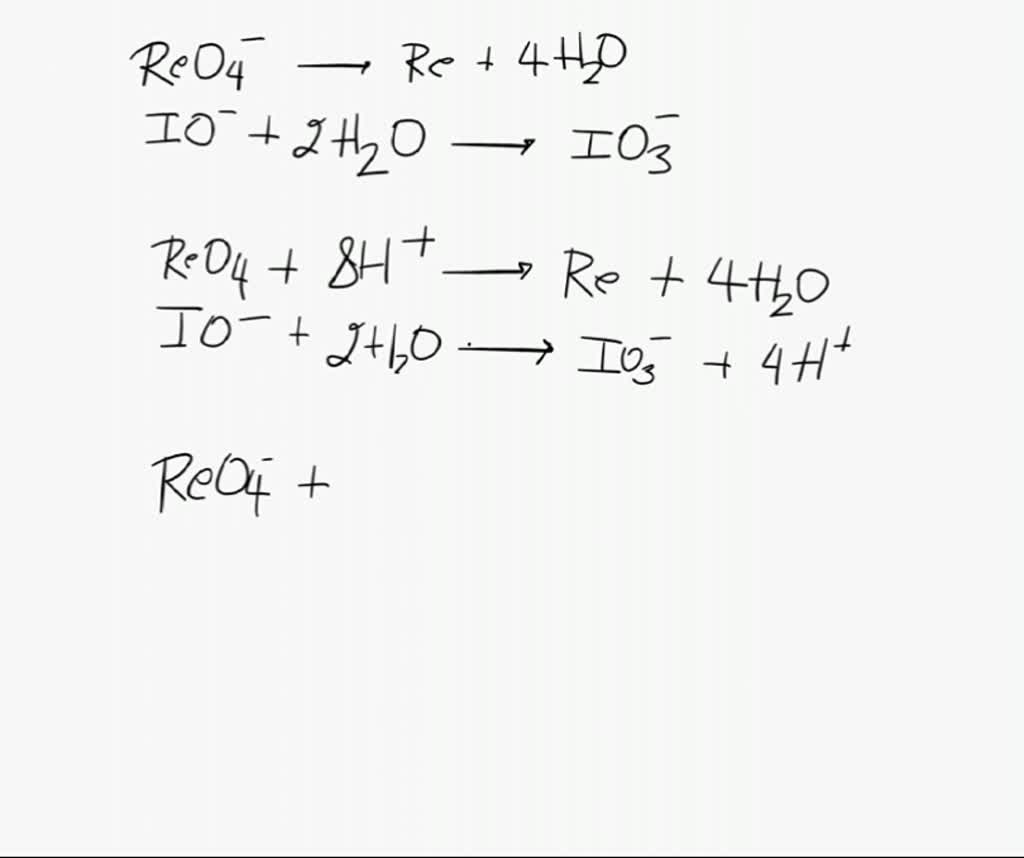 ReO₄⁻ → Re + 4H₂O
IO⁻ + 2H₂O → IO₃⁻
ReO₄ + 8H⁺ → Re + 4H₂O
IO⁻ + 2H₂O → IO₃⁻ + 4H⁺
ReO₄⁻ +